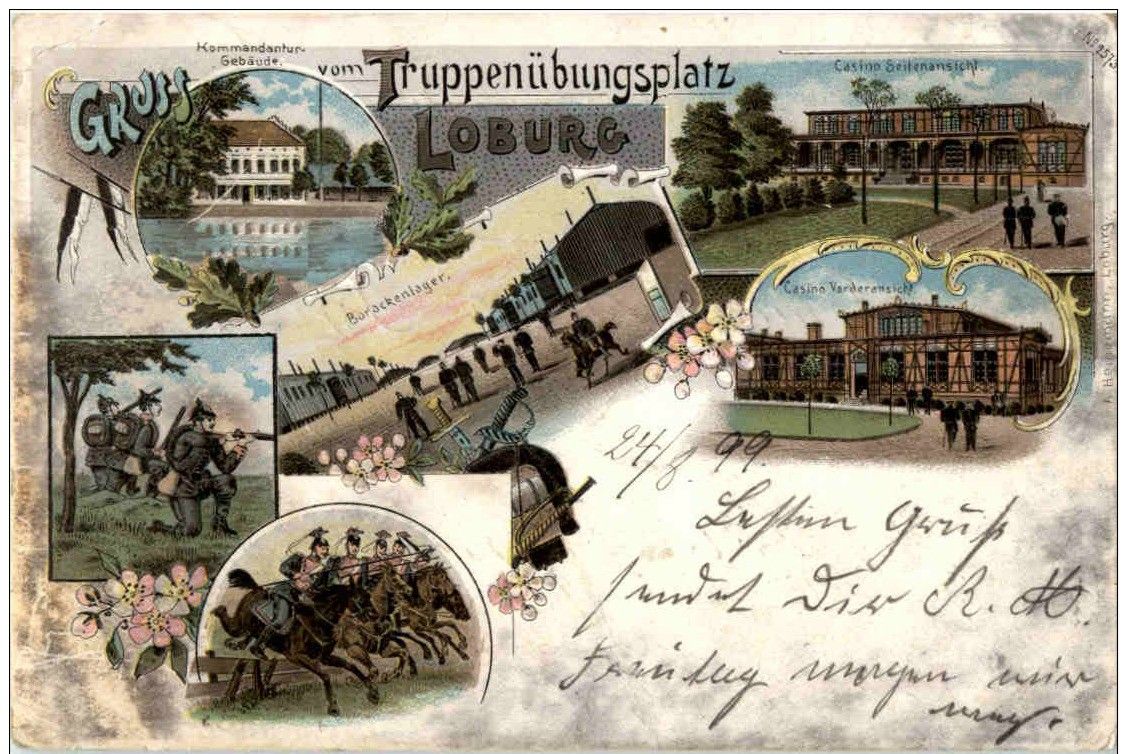 Kommandantur-
Gebäude.
GRUSS vom Truppenübungsplatz
LOBURG
Casino Seitenansicht.
Barackenlager.
Casino Vorderansicht
24/8 99.
Besten Gruß
sendet Dir R.
Freitag morgen wir
weg.
Loburg.